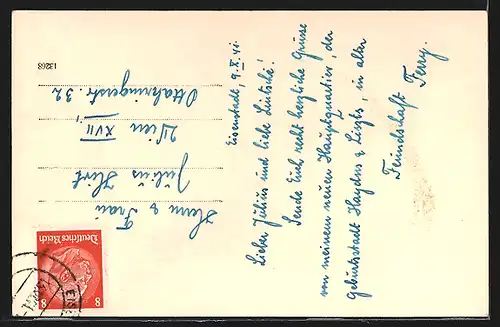 Eisenstadt, 9.X.41.
Lieber Julius und liebe Lintschi!
Sende Euch recht herzliche Grüsse
von meinem neuen Hauptquartier, der
Geburtsstadt Haydns & Liszts, in alter
Feindschaft Ferry.
Herrn & Frau
Julius Hirt
Wien XVII,
Ottakringerstr. 32
13268
Deutsches Reich
8 8